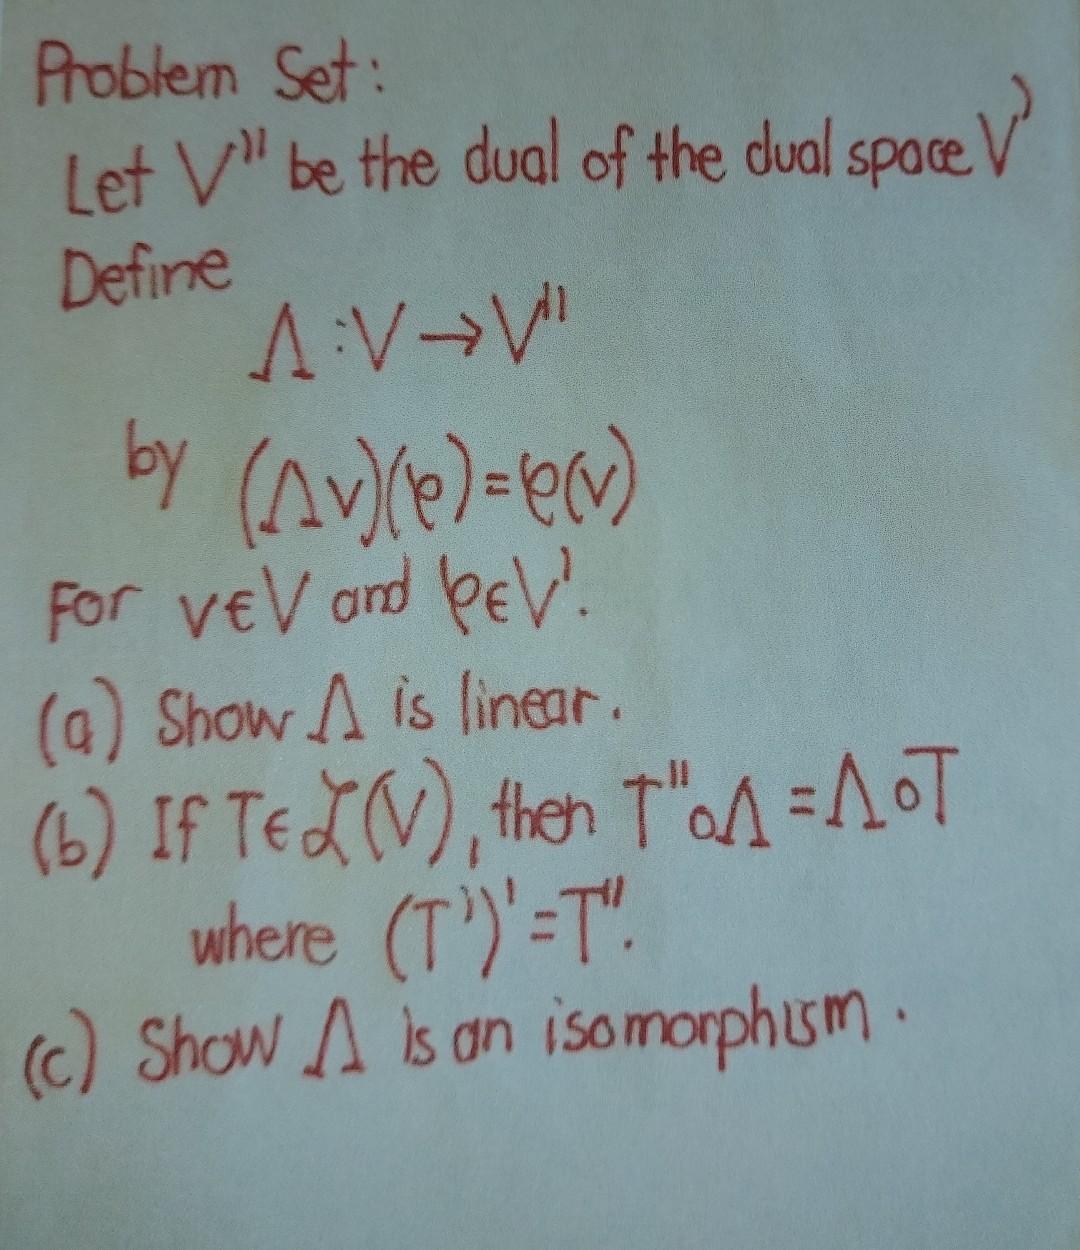 Problem Set:
Let V'' be the dual of the dual space V'
Define
Λ : V → V''
by (Λv)(φ) = φ(v)
For v ∈ V and φ ∈ V'.
(a) Show Λ is linear.
(b) If T ∈ ℒ(V), then T'' ∘ Λ = Λ ∘ T
where (T')' = T''.
(c) Show Λ is an isomorphism.